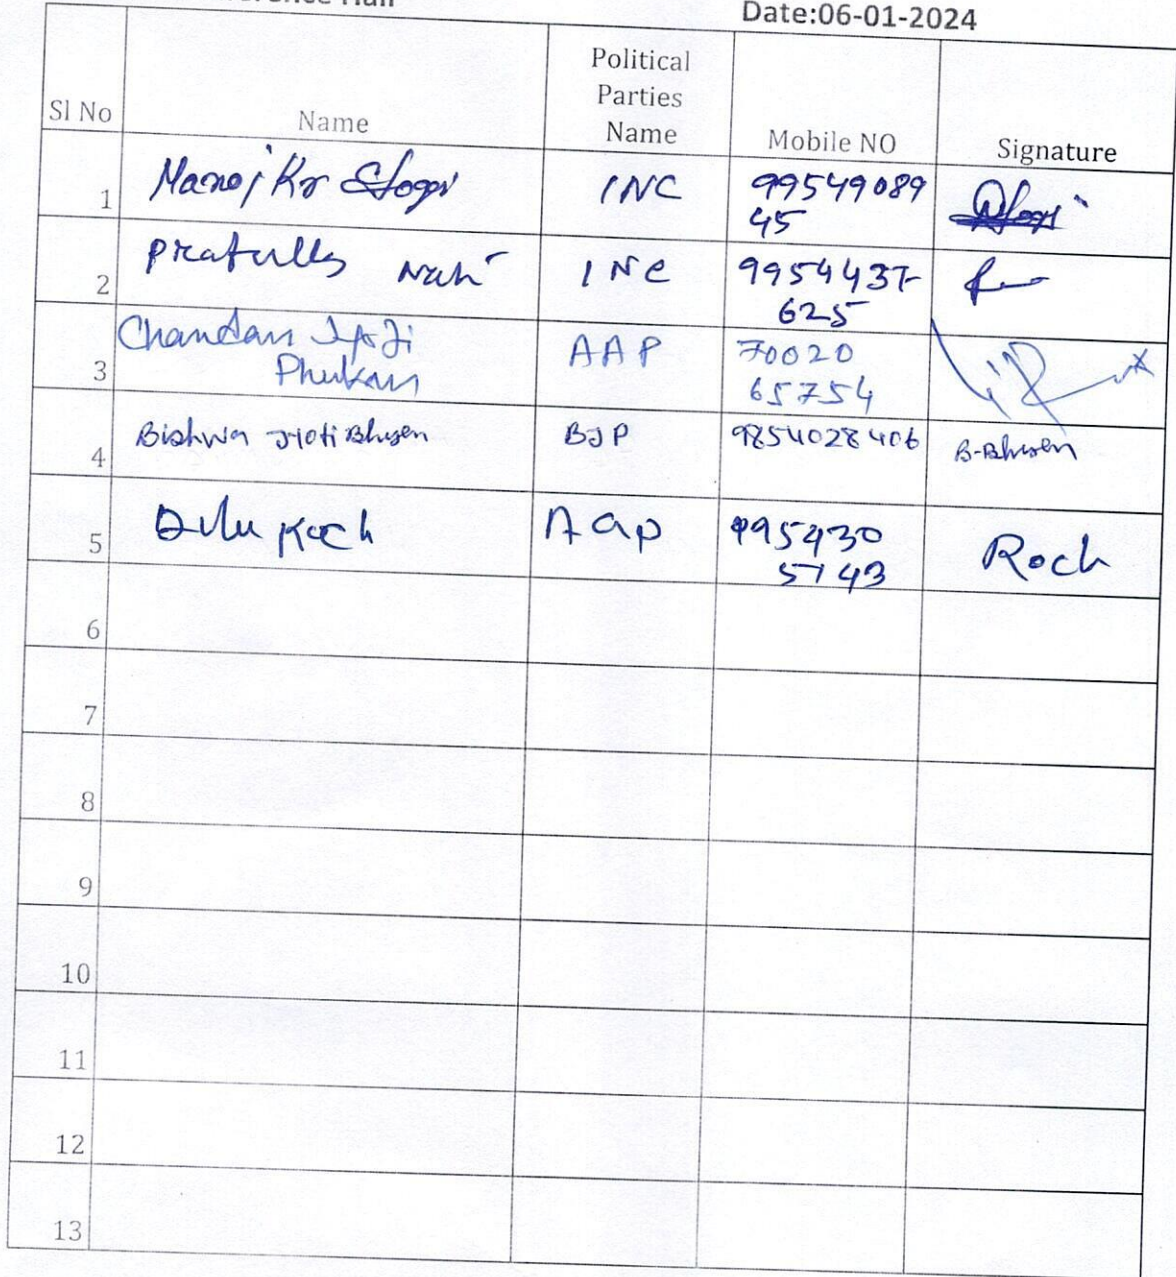 Date:06-01-2024
Sl No Name Political Parties Name Mobile NO Signature
1 Manoj Kr INC 99549089
45
2 Prafulla INC 9954437
625
3 Chandan Jyoti AAP 70020
Phukan 65754
4 Bishwa Jyoti Bhuyan BJP 9854028406 B-Bhuyan
5 Dulu Koch AaP 995430
5143 Koch
6
7
8
9
10
11
12
13